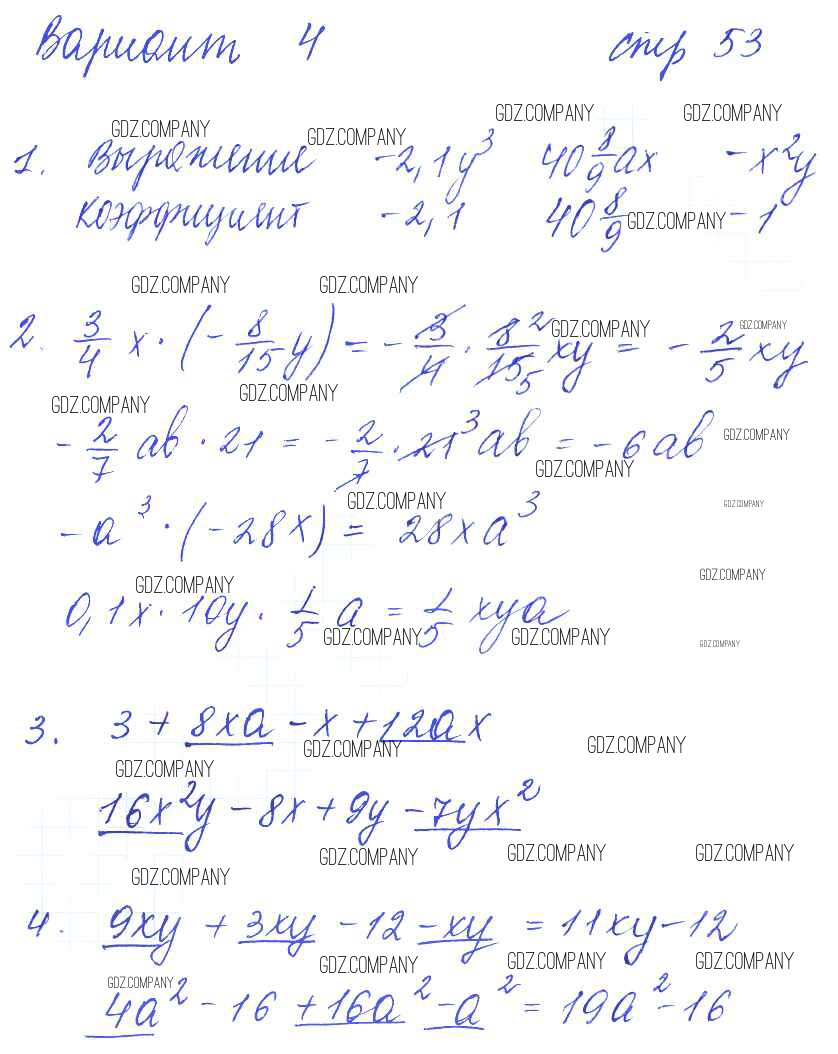 Вариант 4 стр 53
GDZ.COMPANY GDZ.COMPANY GDZ.COMPANY GDZ.COMPANY
1. Выражение -2,1y³ 40 8/9 ax -x²y
коэффициент -2,1 40 8/9 GDZ.COMPANY -1
GDZ.COMPANY GDZ.COMPANY
2. 3/4 x · (- 8/15 y) = - 3/4 · 8²/15₅ xy = - 2/5 xy
GDZ.COMPANY GDZ.COMPANY
GDZ.COMPANY GDZ.COMPANY
- 2/7 ab · 21 = - 2/7 · 21³ ab = -6ab GDZ.COMPANY
GDZ.COMPANY
GDZ.COMPANY GDZ.COMPANY
-a³ · (-28x) = 28xa³
GDZ.COMPANY GDZ.COMPANY
0,1x · 10y · 1/5 a = 1/5 xya
GDZ.COMPANY GDZ.COMPANY GDZ.COMPANY
3. 3 + 8xa - x + 12ax
GDZ.COMPANY GDZ.COMPANY
GDZ.COMPANY
16x²y - 8x + 9y - 7yx²
GDZ.COMPANY GDZ.COMPANY GDZ.COMPANY
GDZ.COMPANY
4. 9xy + 3xy - 12 - xy = 11xy - 12
GDZ.COMPANY GDZ.COMPANY GDZ.COMPANY
GDZ.COMPANY
4a² - 16 + 16a² - a² = 19a² - 16